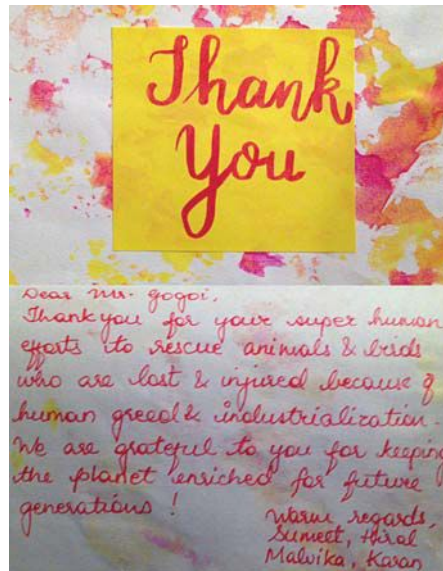 Thank
You
Dear Mr. Gogoi,
Thank you for your super human
efforts to rescue animals & birds
who are lost & injured because of
human greed & industrialization.
We are grateful to you for keeping
the planet enriched for future
generations !
Warm regards,
Sumeet, Hiral
Malvika, Karan